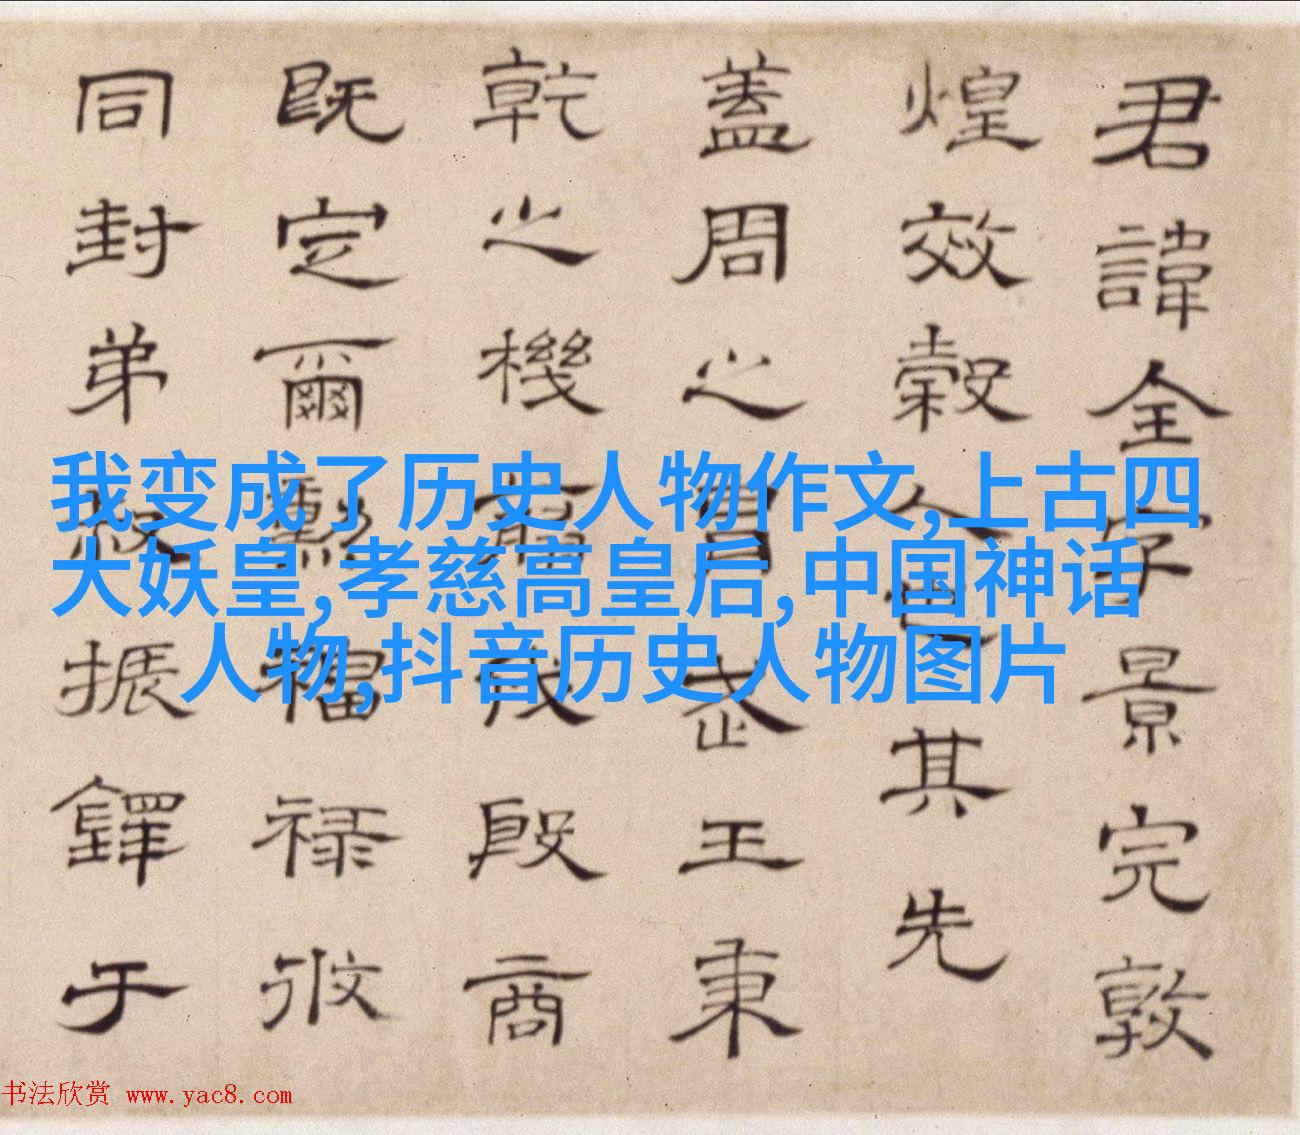 君諱全字景完敦
煌效穀人也其先
蓋周之胄武王秉
乾之機翦伐殷商
既定爾勳福祿攸
同封弟叔振鐸于
我变成了历史人物作文,上古四
大妖皇,孝慈高皇后,中国神话
人物,抖音历史人物图片
书法欣赏 www.yac8.com